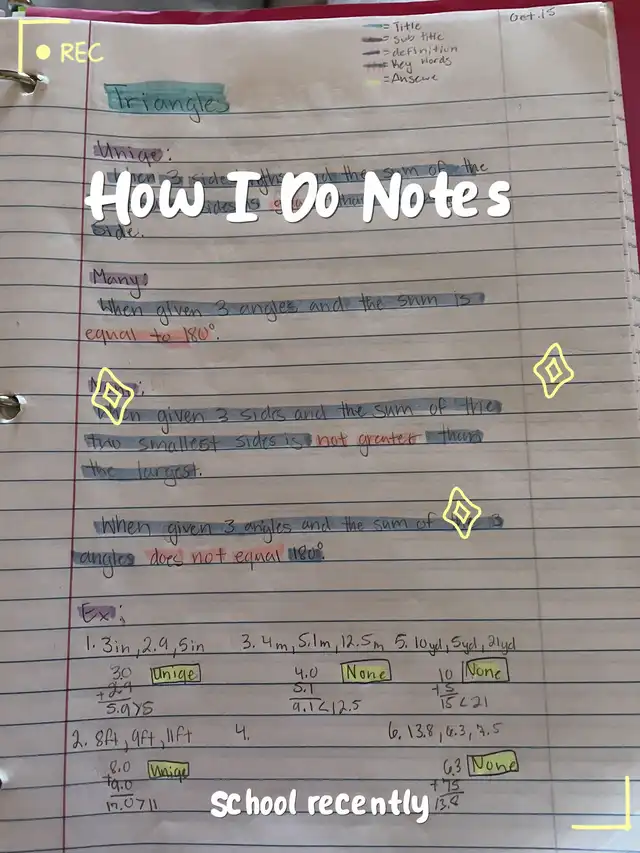 REC
Oct. 15
= Title
= sub title
= definition
= Key words
= Answer
Triangles
Uniqe:
When 3 side and the sum of the
How I Do Notes
side.
Many:
When given 3 angles and the sum is
equal to 180°.
When given 3 sides and the sum of the
two smallest sides is not greater than
the largest.
When given 3 angles and the sum of 3
angles does not equal 180°.
Ex:
1. 3in, 2.9, 5in 3. 4m, 5.1m, 12.5m 5. 10yd, 5yd, 21yd
30 Uniqe 4.0 None 10 None
+2.9 5.1 +5
5.9>5 9.1<12.5 15<21
2. 8ft, 9ft, 11ft 4. 6. 13.8, 6.3, 7.5
8.0 Uniqe 6.3 None
+9.0 +75
17.0>11 13.8
school recently